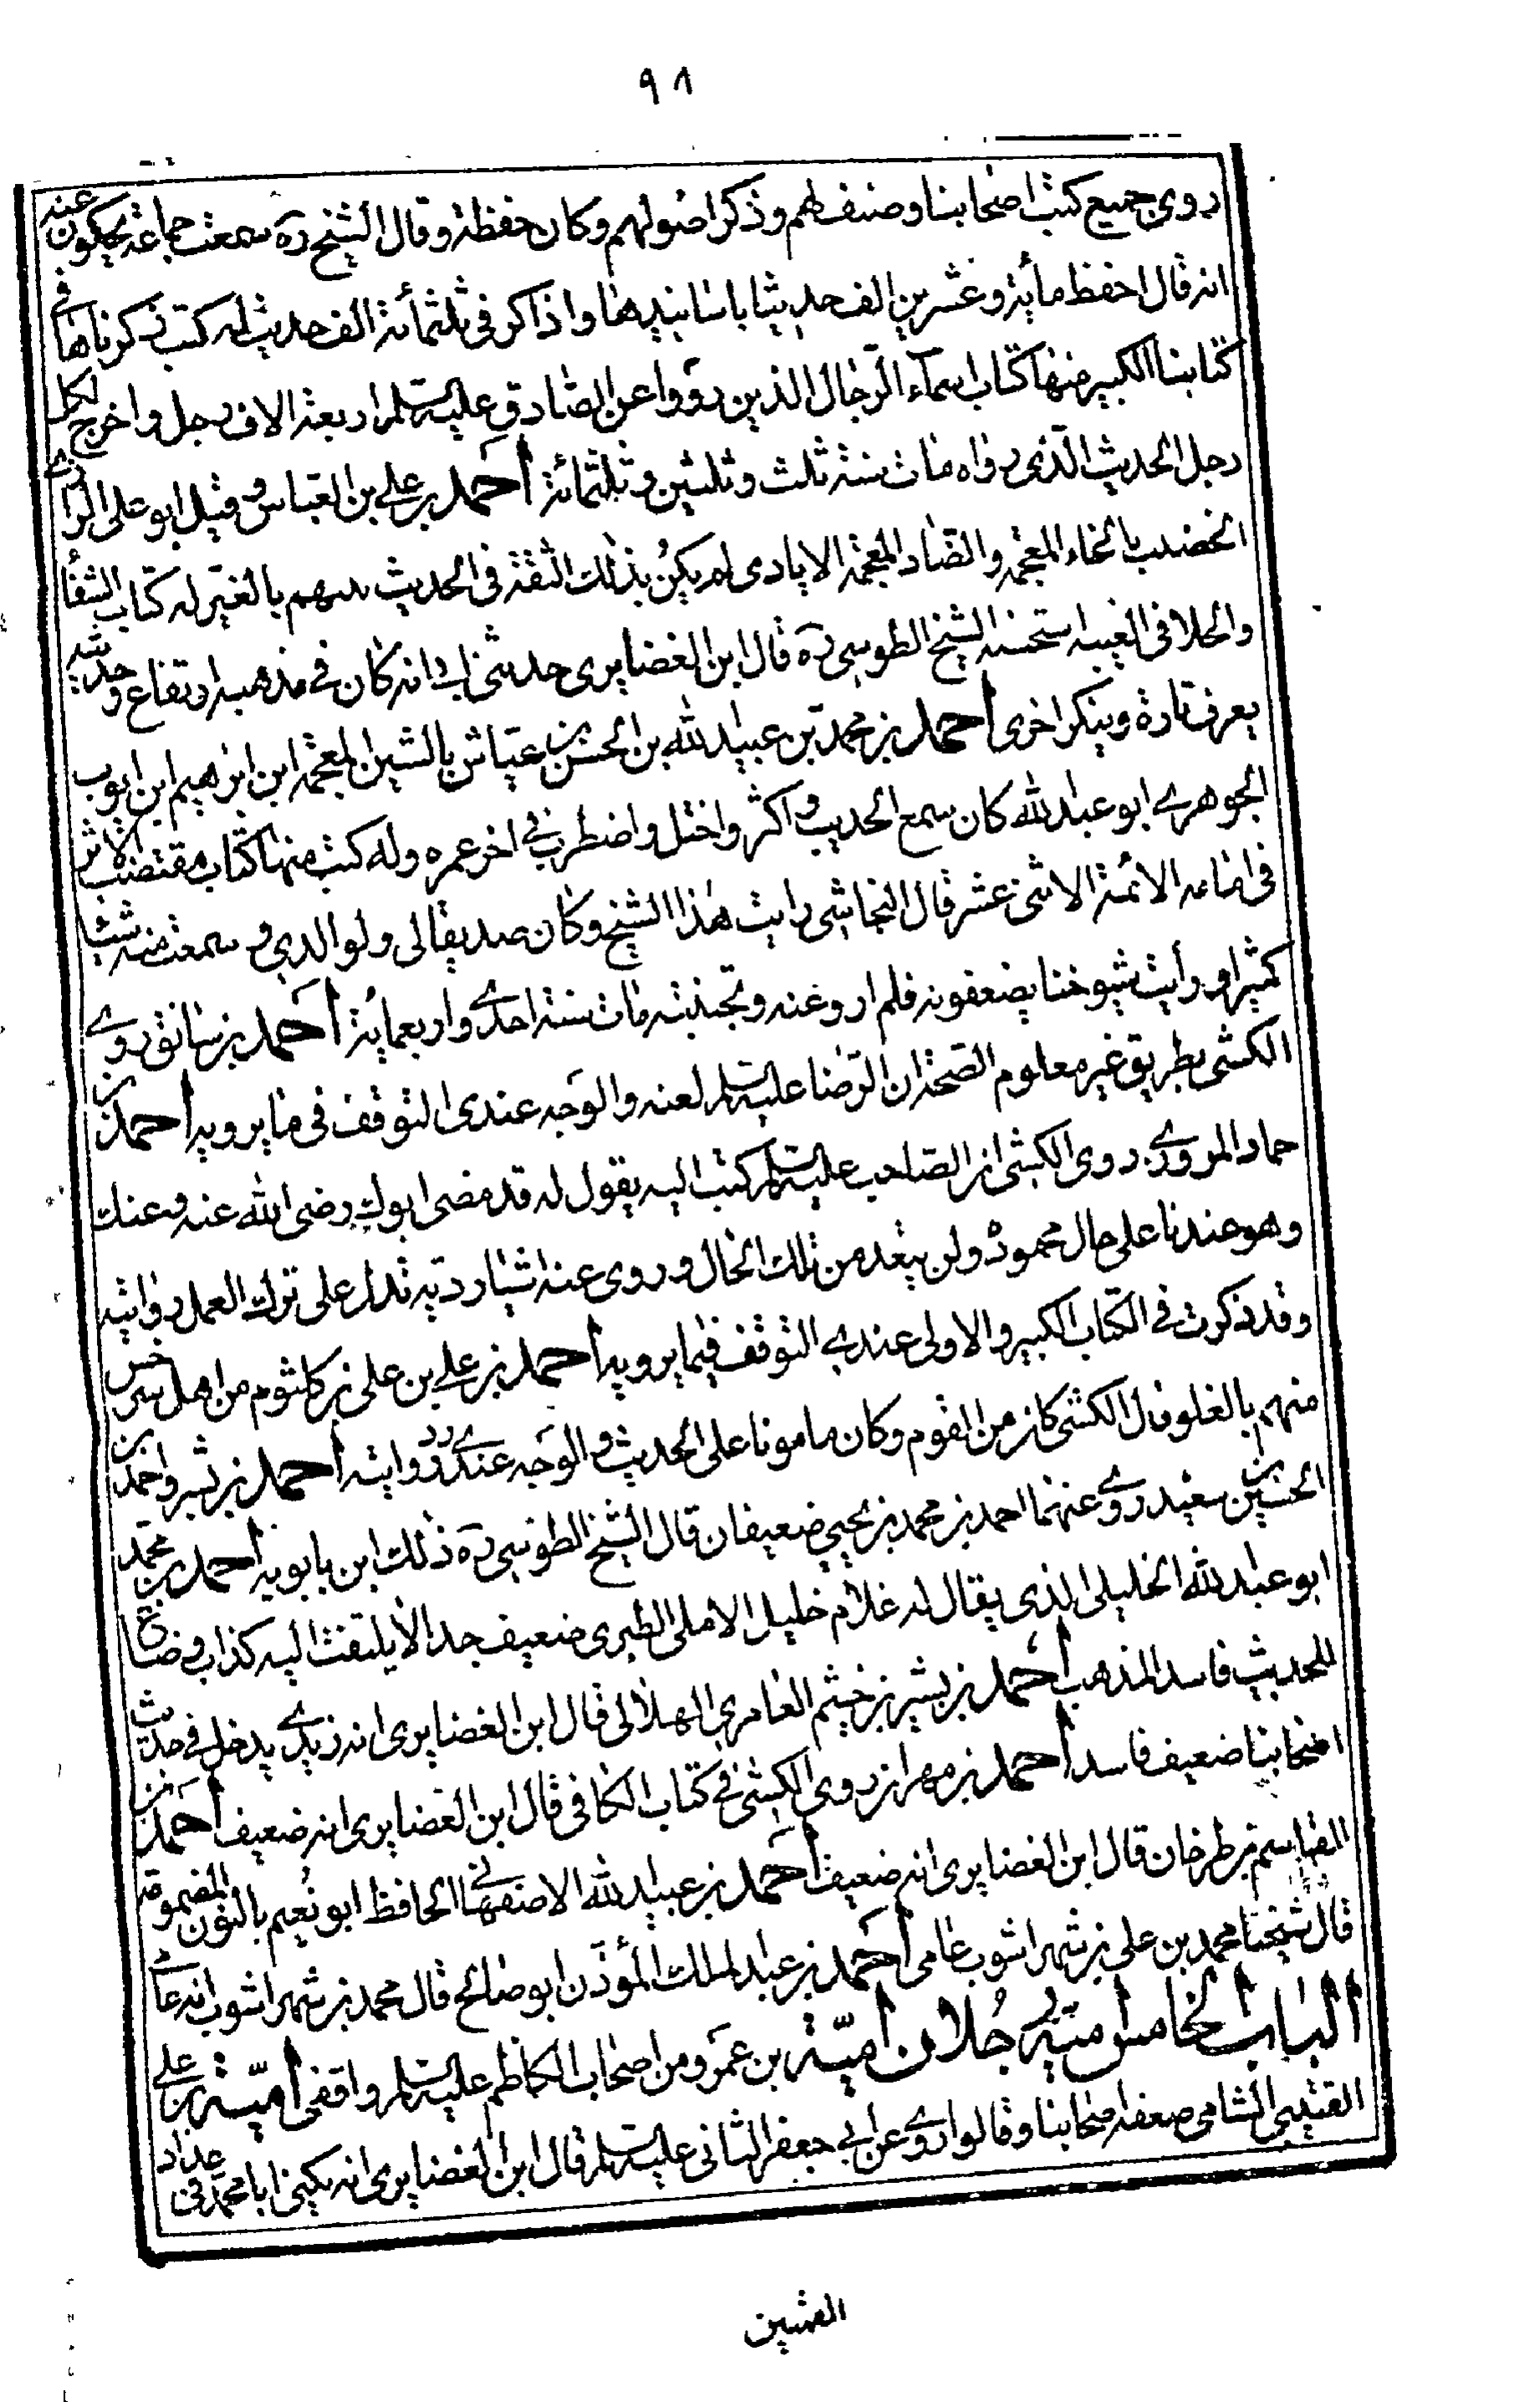 ٩٨
روى جميع كتب اصحابنا وصنف لهم وذكر اصولهم وكان حفظة وقال الشيخ ره سمعت جماعة يحكون عنه
انه قال احفظ مأية وعشرين الف حديثا باسانيدها واذاكر فى ثلثمأئة الف حديث له كتب ذكرناها فى
كتابنا الكبير منها كتاب اسمآء الرجال الذين رووا عن الصادق عليه السلم اربعة الاف رجل واخرج لكل
رجل الحديث الذى رواه مات سنة ثلث وثلثين وثلثمائة أحمد بن على بن العباس وقيل ابو على الرازى
الخضيب بالخاء المعجمة والضاد المعجمة الايادى لم يكن بذلك الثقة فى الحديث ىىهم بالغير له كتاب الشفا
والجلا فى الغيبة استحسنه الشيخ الطوسى ره قال ابن الغضايرى حدثنى ابى انه كان فى مذهبه ارتفاع وحديثه
يعرف تارة وينكر اخرى أحمد بن محمد بن عبيد الله بن الحسن بن عياش بالشين المعجمة ابن ابرهيم ابن ايوب
الجوهرى ابو عبد الله كان سمع الحديث واكثر واختل واضطرب فى اخر عمره وله كتب منها كتاب مقتضب الاثر
فى امامه الائمة الاثنى عشر قال النجاشى رايت هذا الشيخ وكان صديقا لى ولوالدى و سمعت منه شيئا
كثيرا ورأيت شيوخنا يضعفونه فلم ارو عنه وتجنبته مات سنة احدى واربعماية أحمد بن سابق روى
الكشى بطريق غير معلوم الصحة ان الرضا عليه السلم لعنه والوجه عندى التوقف فى ما يرويه أحمد بن
حماد المروزى روى الكشى ان الصاحب عليه السلم كتب اليه يقول له قد مضى ابوك رضى الله عنه وعنك
وهو عندنا على حال محمودة ولن يبعد من تلك الحال وروى عنه اشياء ردية تدل على ترك العمل روايته
وقد ذكرت فى الكتاب الكبير والاولى عندى التوقف فيما يرويه أحمد بن على بن على بن كلثوم من اهل سرخس
متهم بالغلو قال الكشى كان من القوم وكان مامونا على الحديث والوجه عندى رد روايته أحمد بن بشر واحمد بن
الحسين بن سعيد روى عنهما احمد بن محمد بن يحيى ضعيفان قال الشيخ الطوسى ره ذلك ابن بابويه أحمد بن محمد
ابو عبد الله الخليلى الذى يقال له غلام خليل الاملى الطبرى ضعيف جدا لا يلتفت اليه كذاب وضاع
للحديث فاسد المذهب أحمد بن بشير بن خيثم العامرى الهلالى قال ابن الغضايرى انه زيدى يدخل فى حديث
اصحابنا ضعيف فاسد أحمد بن مهران روى الكشى فى كتاب الكافى قال ابن الغضايرى انه ضعيف أحمد بن
القاسم بن طرخان قال ابن الغضايرى انه ضعيف أحمد بن عبيد الله الاصفهانى الحافظ ابو نعيم بالنون المضمومة
قال شيخنا محمد بن على بن شهراشوب عامى أحمد بن عبد الملك المأوذن ابو صالح قال محمد بن شهراشوب انه عامى
الباب الخامس منه رجلان أميّة بن عمرو من اصحاب الكاظم عليه السلم واقفى أميّة بن على
القتيبى الشامى ضعفه اصحابنا وقالوا روى عن ابى جعفر الثانى عليه السلم قال ابن الغضايرى انه يكنى ابا محمد فى عداد
القميين